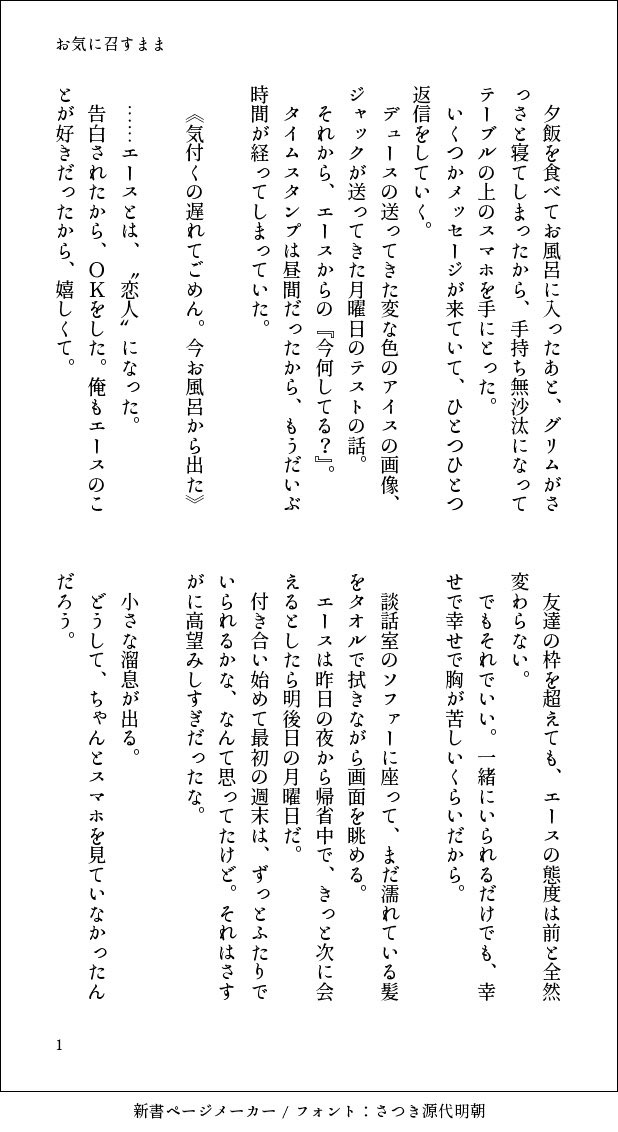 お気に召すまま
夕飯を食べてお風呂に入ったあと、グリムがさ
っさと寝てしまったから、手持ち無沙汰になって
テーブルの上のスマホを手にとった。
いくつかメッセージが来ていて、ひとつひとつ
返信をしていく。
デュースの送ってきた変な色のアイスの画像、
ジャックが送ってきた月曜日のテストの話。
それから、エースからの『今何してる？』。
タイムスタンプは昼間だったから、もうだいぶ
時間が経ってしまっていた。
《気付くの遅れてごめん。今お風呂から出た》
……エースとは、〝恋人〟になった。
告白されたから、ＯＫをした。俺もエースのこ
とが好きだったから、嬉しくて。
友達の枠を超えても、エースの態度は前と全然
変わらない。
でもそれでいい。一緒にいられるだけでも、幸
せで幸せで胸が苦しいくらいだから。
談話室のソファーに座って、まだ濡れている髪
をタオルで拭きながら画面を眺める。
エースは昨日の夜から帰省中で、きっと次に会
えるとしたら明後日の月曜日だ。
付き合い始めて最初の週末は、ずっとふたりで
いられるかな、なんて思ってたけど。それはさす
がに高望みしすぎだったな。
小さな溜息が出る。
どうして、ちゃんとスマホを見ていなかったん
だろう。
1
新書ページメーカー / フォント：さつき源代明朝